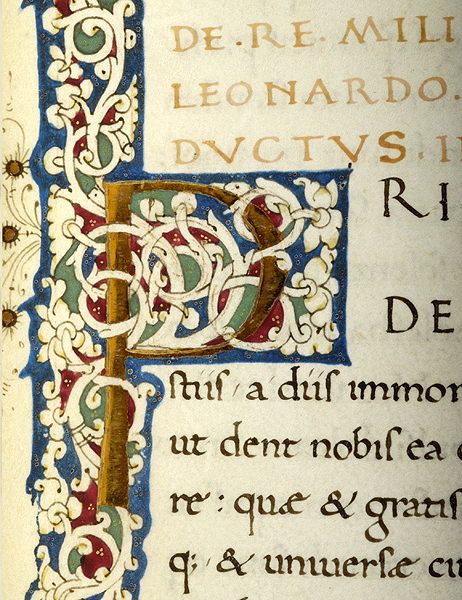 DE · RE · MILI
LEONARDO ·
DVCTVS · I
PRI
DE
stiis / a diis immor
ut dent nobis ea
re : quæ & gratis
q; & uniuersæ cu